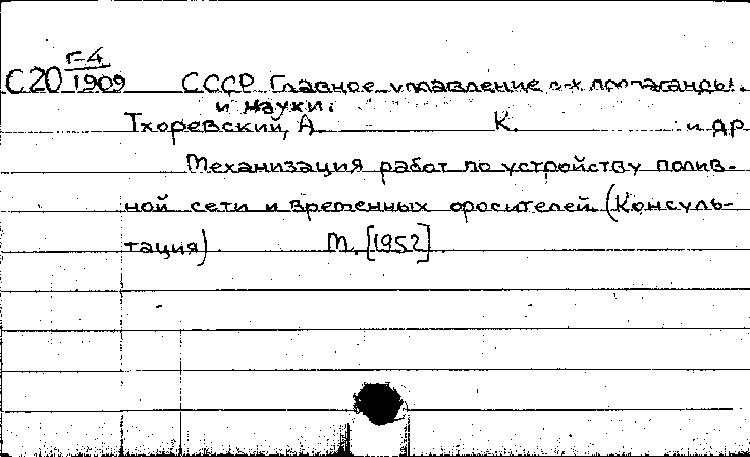 Г-4
С20 1909 СССР Главное управление с-х пропаганды.
и науки.
Тхоревский, А. К. и др
Механизация работ по устройству полив-
ной сети и временных оросителей (Консуль-
тация) М. [1952]